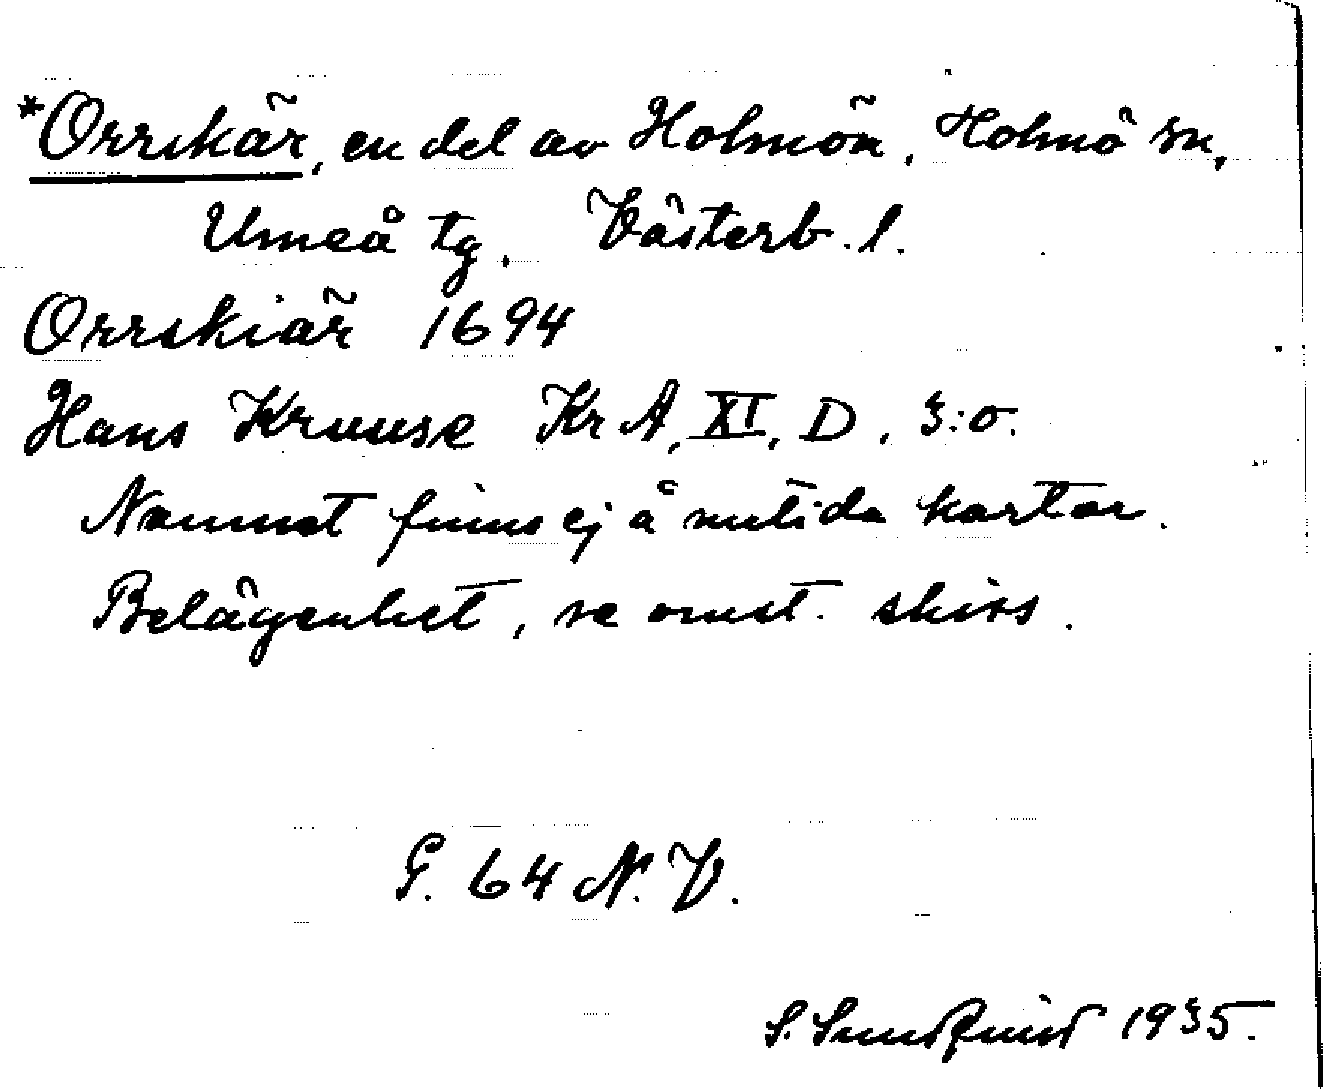 *Orrskär, en del av Holmön, Holmö sn,
Umeå tg. Västerb. l.
Orrskiär 1694
Hans Kruuse Kr A, XI, D, 3:o.
Namnet finns ej å nutida kartor.
Belägenhet, se omst. skiss.
G. 64 N.V.
S. Sundquist 1935.